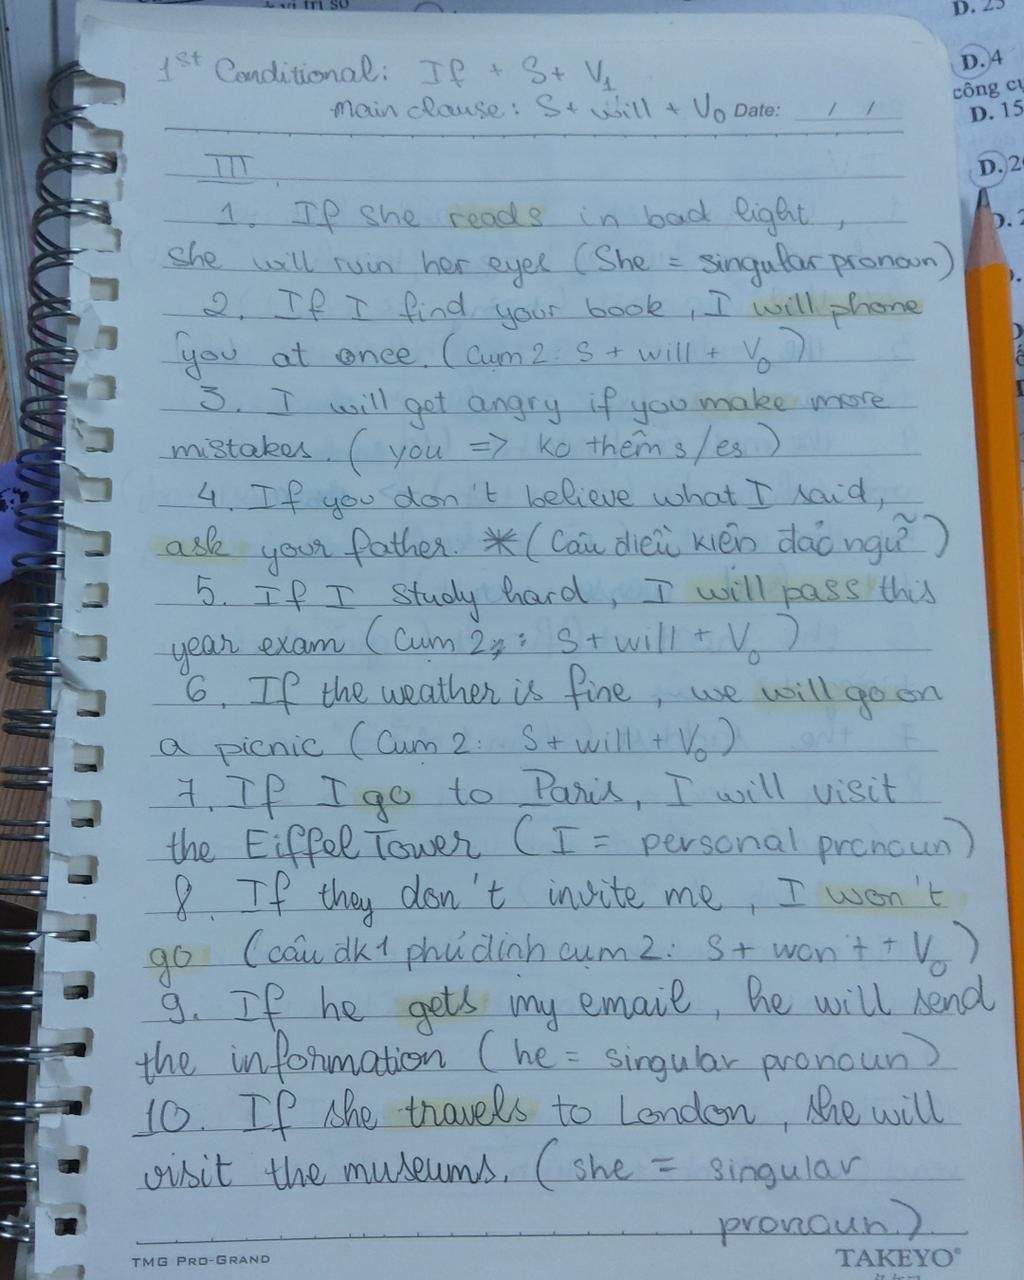 1st Conditional: If + S + V1
main clause: S + will + V0 Date: / /
III
1. If she reads in bad light,
she will ruin her eyes (She = singular pronoun)
2. If I find your book, I will phone
you at once. (Cụm 2: S + will + V0)
3. I will get angry if you make more
mistakes. (you => ko thêm s/es)
4. If you don't believe what I said,
ask your father. * (Câu điều kiện đảo ngữ)
5. If I study hard, I will pass this
year exam (Cụm 2: S + will + V0)
6. If the weather is fine, we will go on
a picnic (Cụm 2: S + will + V0)
7. If I go to Paris, I will visit
the Eiffel Tower (I = personal pronoun)
8. If they don't invite me, I won't
go (câu đk1 phủ định cụm 2: S + won't + V0)
9. If he gets my email, he will send
the information (he = singular pronoun)
10. If she travels to London, she will
visit the museums. (she = singular
pronoun)
TMG PRO-GRAND TAKEYO®
D. 25
D. 4
công cụ
D. 15